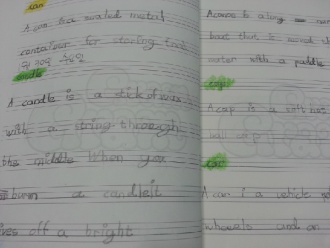 can
A can is a sealed metal
container for storing food
candle
A candle is a stick of wax
with a string through
the middle When you
burn a candle it
gives off a bright
A canoe is a long
boat that is moved
water with a paddle
cap
A cap is a soft hat
ball cap
car
A car i a vehicle
wheels and an